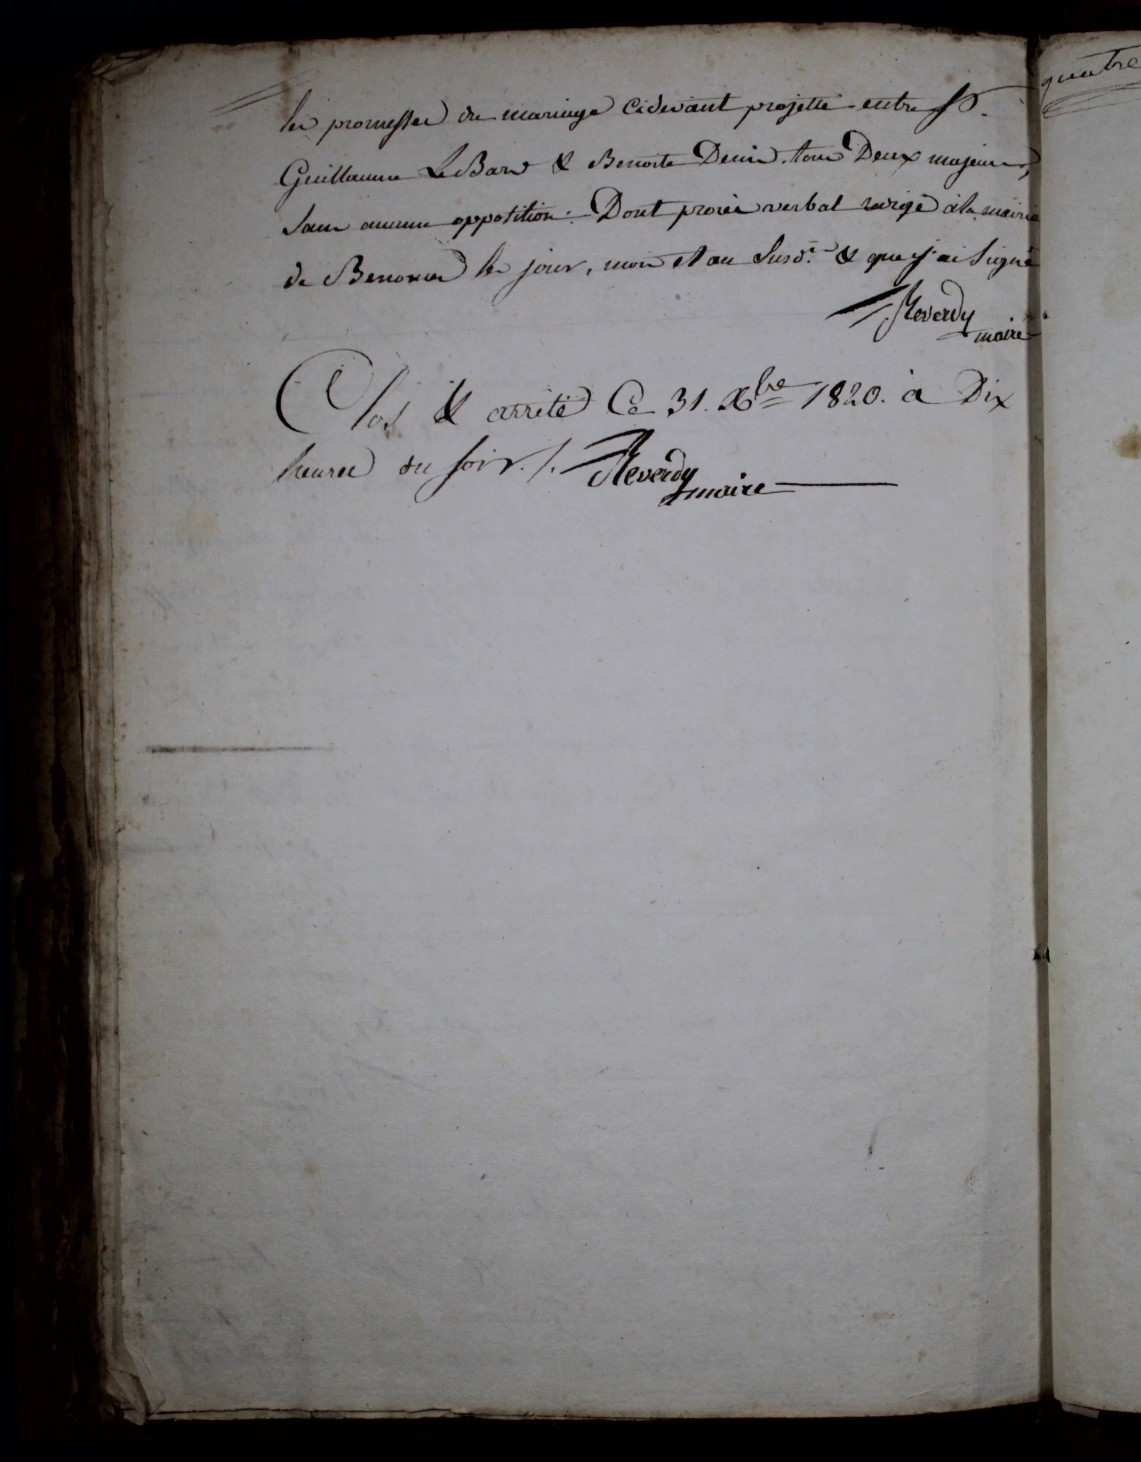 les promesses de mariage cidevant projetté entre Sr.
Guillaume LeBare & Benoite Denis. tous Deux majeurs,
sans aucune opposition. Dont procès verbal rédigé à la mairie
de les jour, mois et an susd. & que j'ai signé
Reverdy
maire
Clos & arrêté Ce 31. Xbre 1820. à Dix
heures du soir ./. Reverdy
maire
quatre